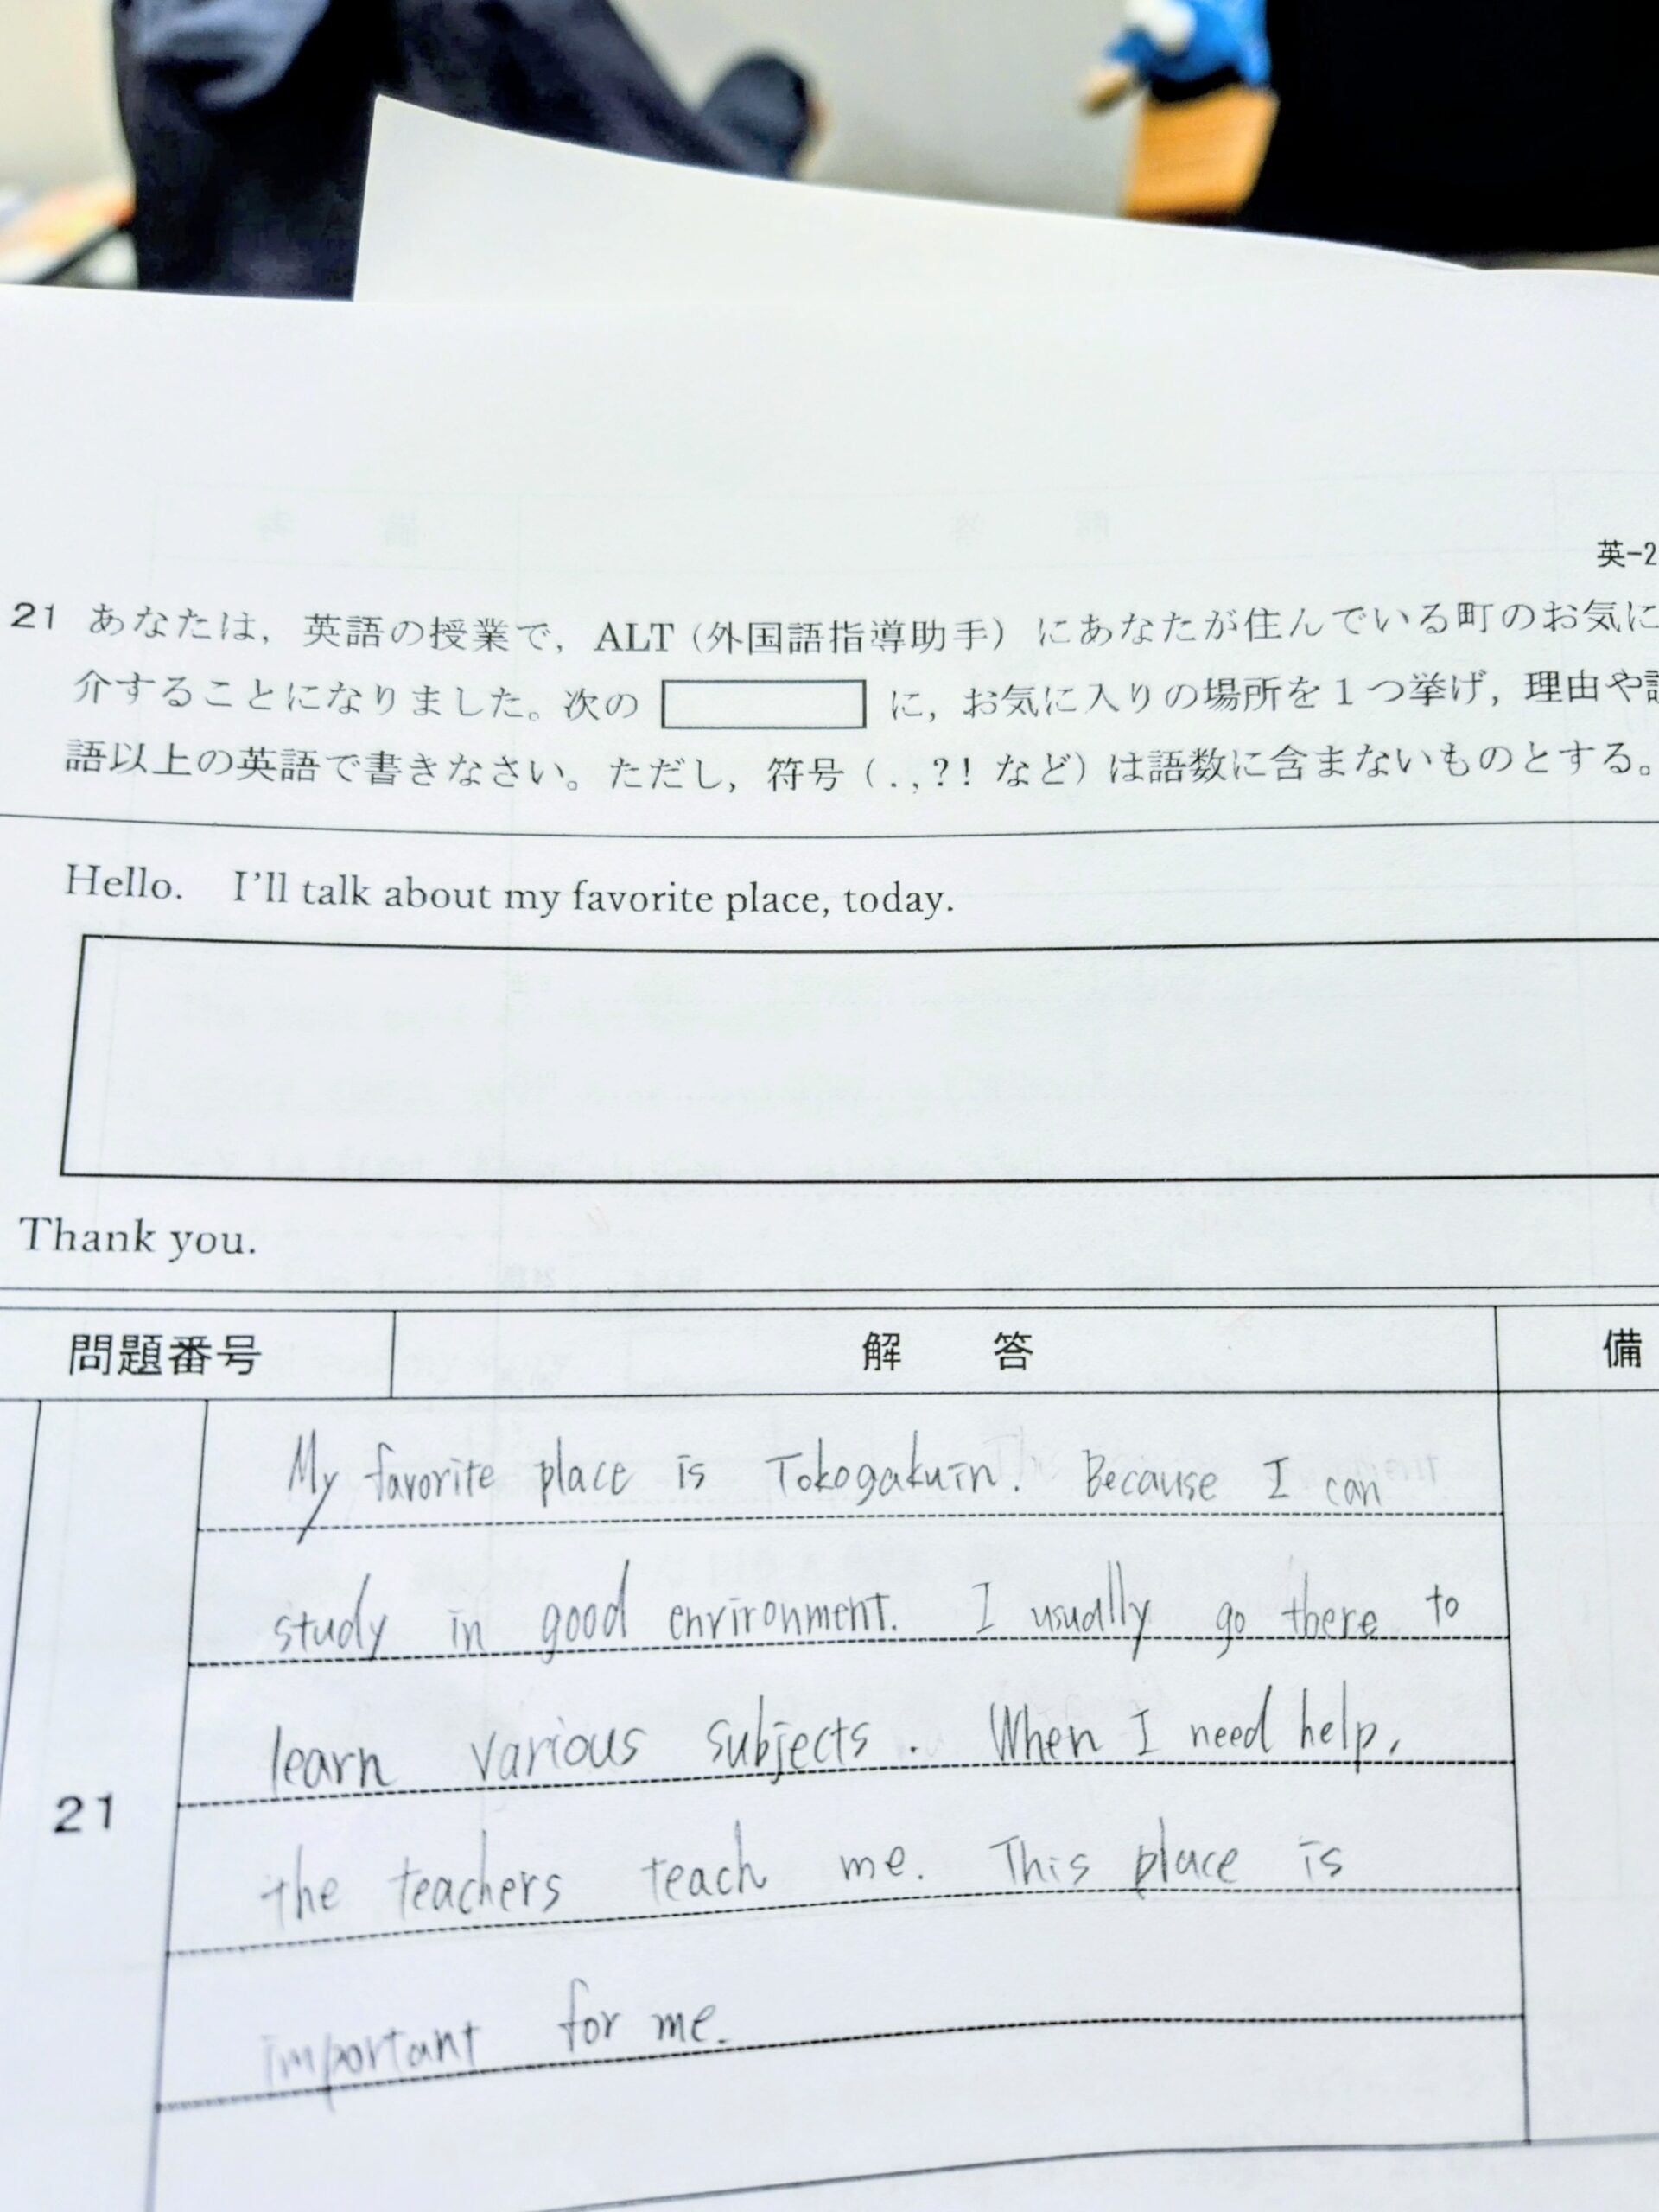 英-2
21 あなたは，英語の授業で，ALT（外国語指導助手）にあなたが住んでいる町のお気に
介することになりました。次の に，お気に入りの場所を１つ挙げ，理由や
語以上の英語で書きなさい。ただし，符号（．，？！など）は語数に含まないものとする。
Hello. I'll talk about my favorite place, today.
Thank you.
問題番号 解答 備
My favorite place is Tokogakuin. Because I can
study in good environment. I usually go there to
learn various subjects. When I need help,
21
the teachers teach me. This place is
important for me.